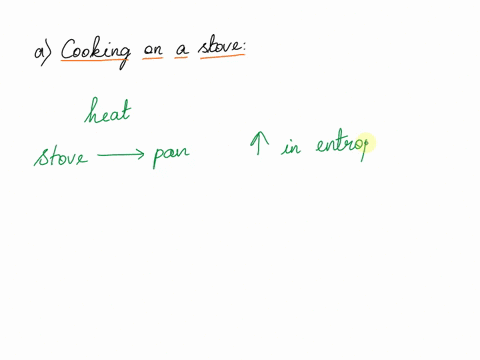 a) Cooking on a stove:
heat
stove → pan ↑ in entrop